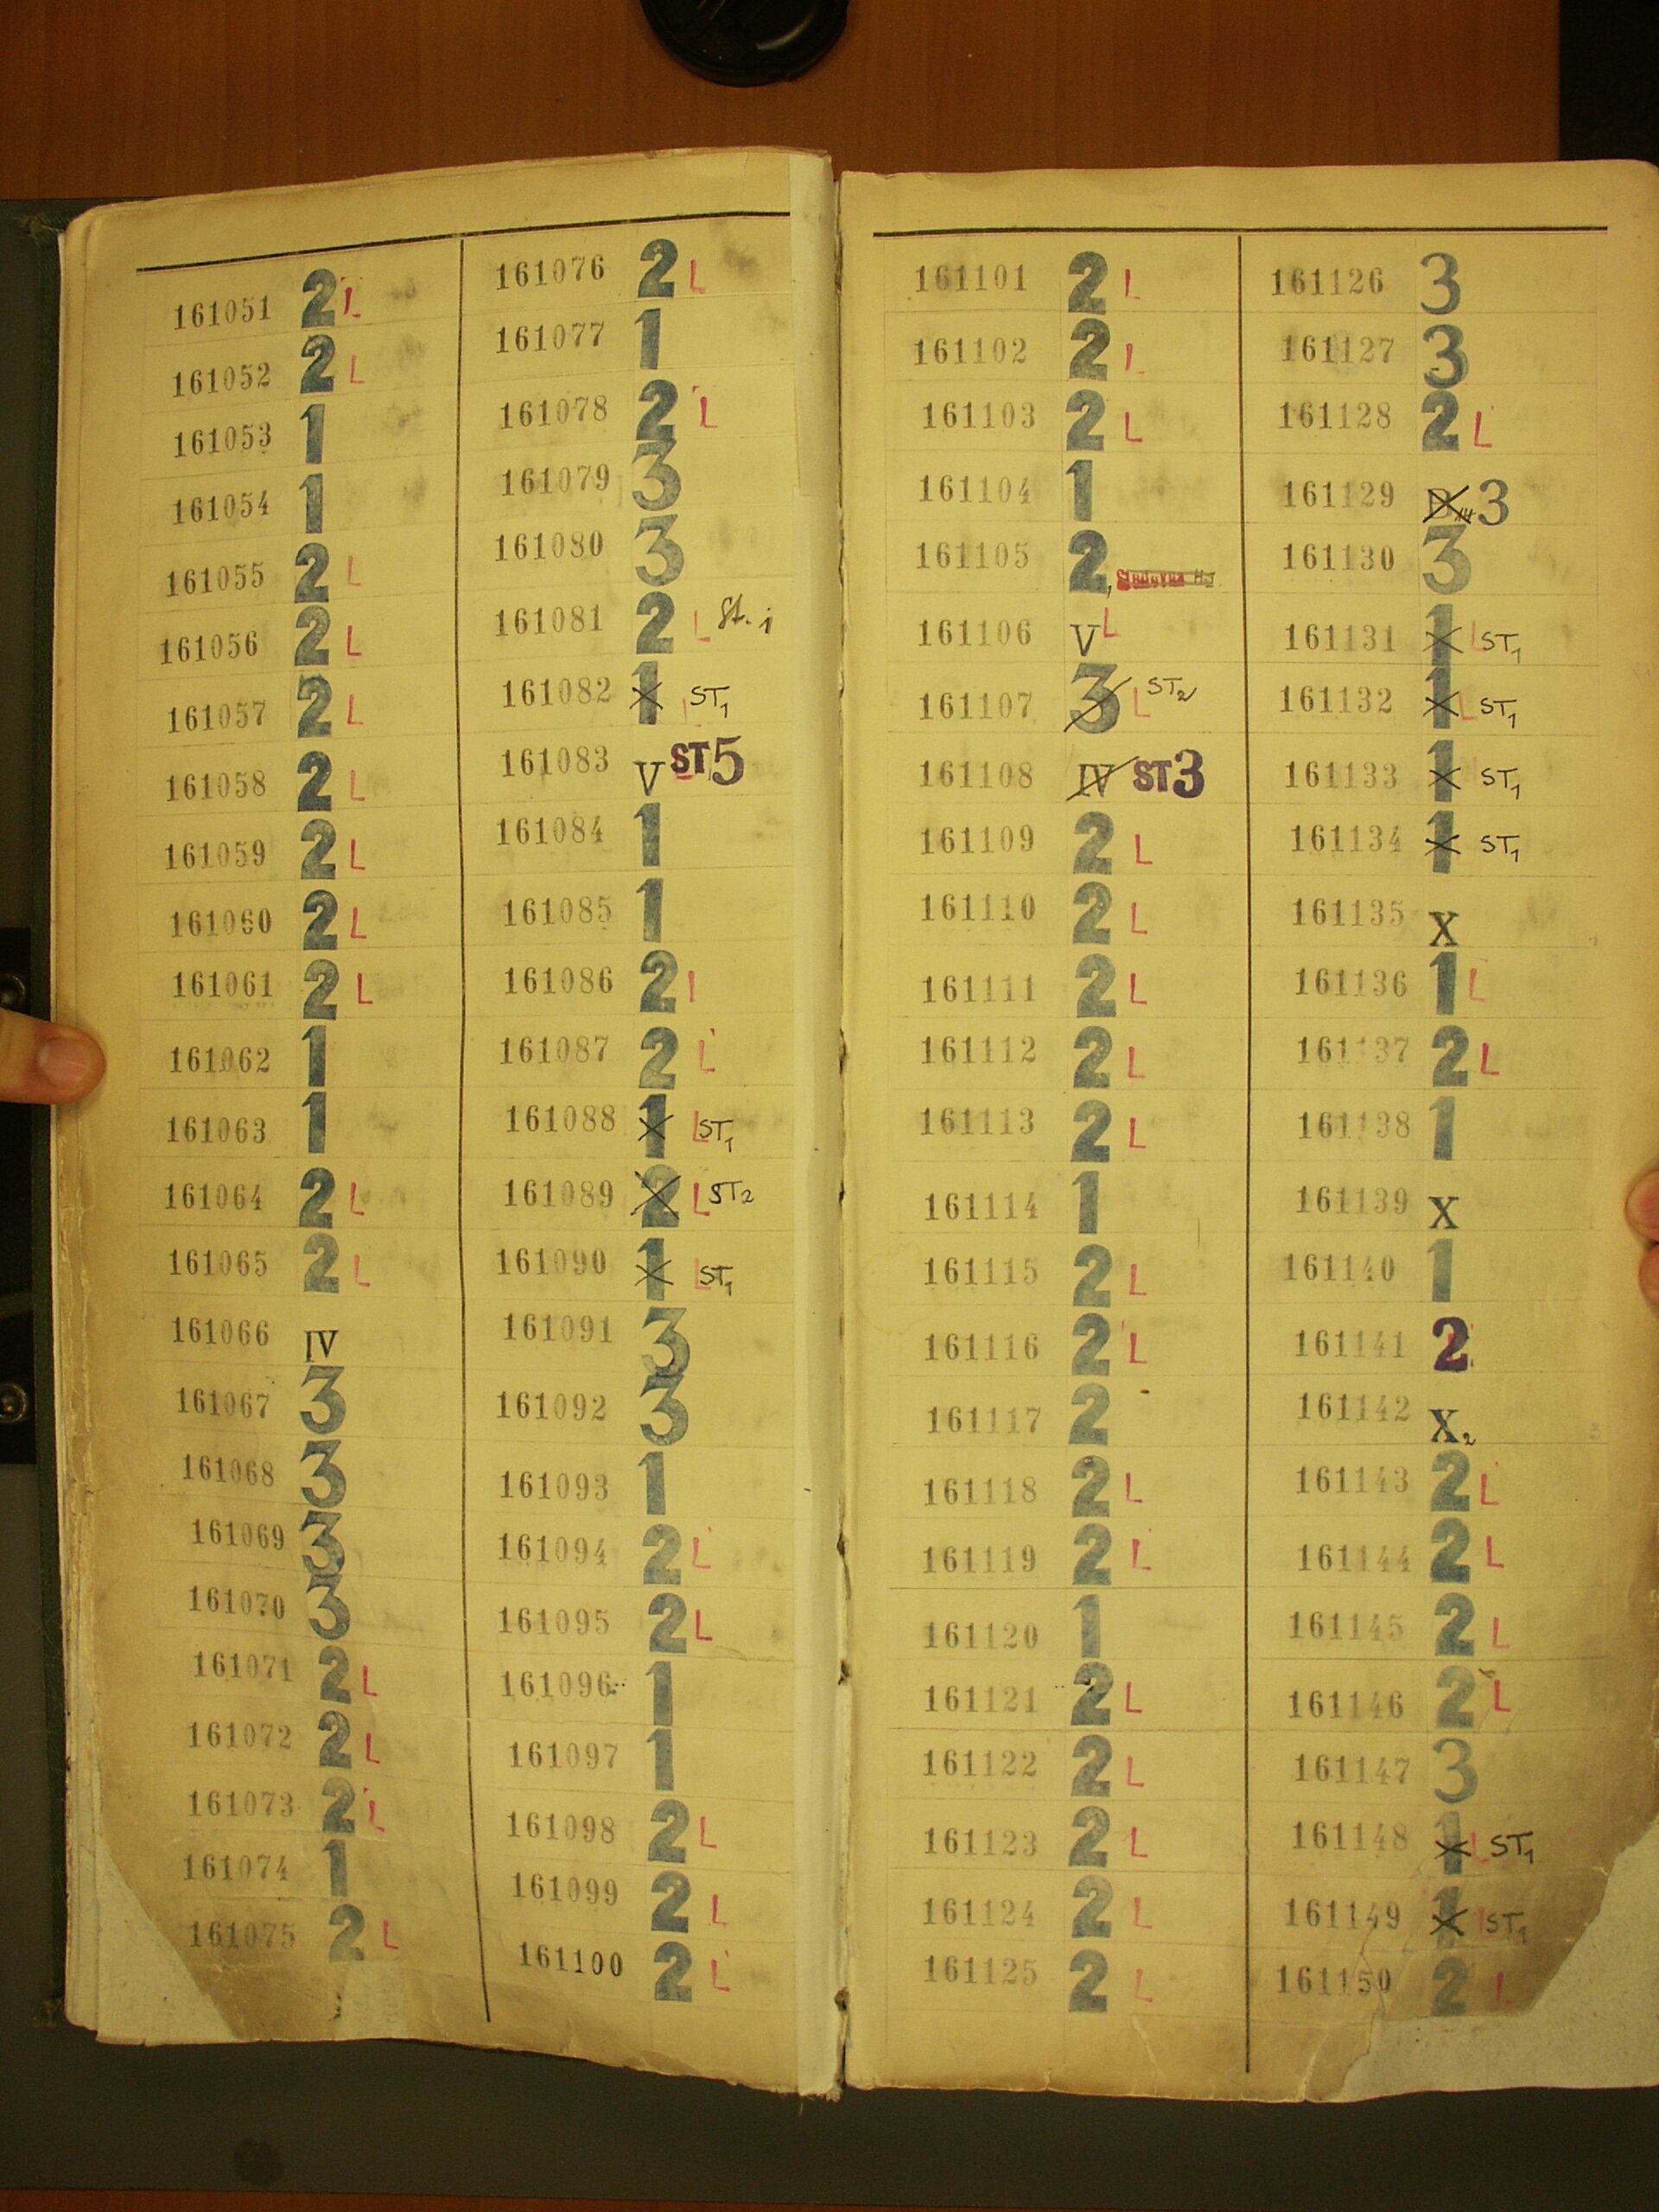 161051 2 L
161052 2 L
161053 1
161054 1
161055 2 L
161056 2 L
161057 2 L
161058 2 L
161059 2 L
161060 2 L
161061 2 L
161062 1
161063 1
161064 2 L
161065 2 L
161066 IV
161067 3
161068 3
161069 3
161070 3
161071 2 L
161072 2 L
161073 2 L
161074 1
161075 2 L
161076 2 L
161077 1
161078 2 L
161079 3
161080 3
161081 2 L St. j
161082 1 L ST1
161083 V ST5
161084 1
161085 1
161086 2 L
161087 2 L
161088 1 L ST1
161089 2 L ST2
161090 1 L ST1
161091 3
161092 3
161093 1
161094 2 L
161095 2 L
161096 1
161097 1
161098 2 L
161099 2 L
161100 2 L
161101 2 L
161102 2 L
161103 2 L
161104 1
161105 2, Studovna
161106 V L
161107 3 L ST2
161108 IV ST3
161109 2 L
161110 2 L
161111 2 L
161112 2 L
161113 2 L
161114 1
161115 2 L
161116 2 L
161117 2
161118 2 L
161119 2 L
161120 1
161121 2 L
161122 2 L
161123 2 L
161124 2 L
161125 2 L
161126 3
161127 3
161128 2 L
161129 3
161130 3
161131 1 L ST1
161132 1 L ST1
161133 1 L ST1
161134 1 ST1
161135 X
161136 1 L
161137 2 L
161138 1
161139 X
161140 1
161141 2
161142 X2
161143 2 L
161144 2 L
161145 2 L
161146 2 L
161147 3
161148 1 L ST1
161149 1 L ST1
161150 2 L